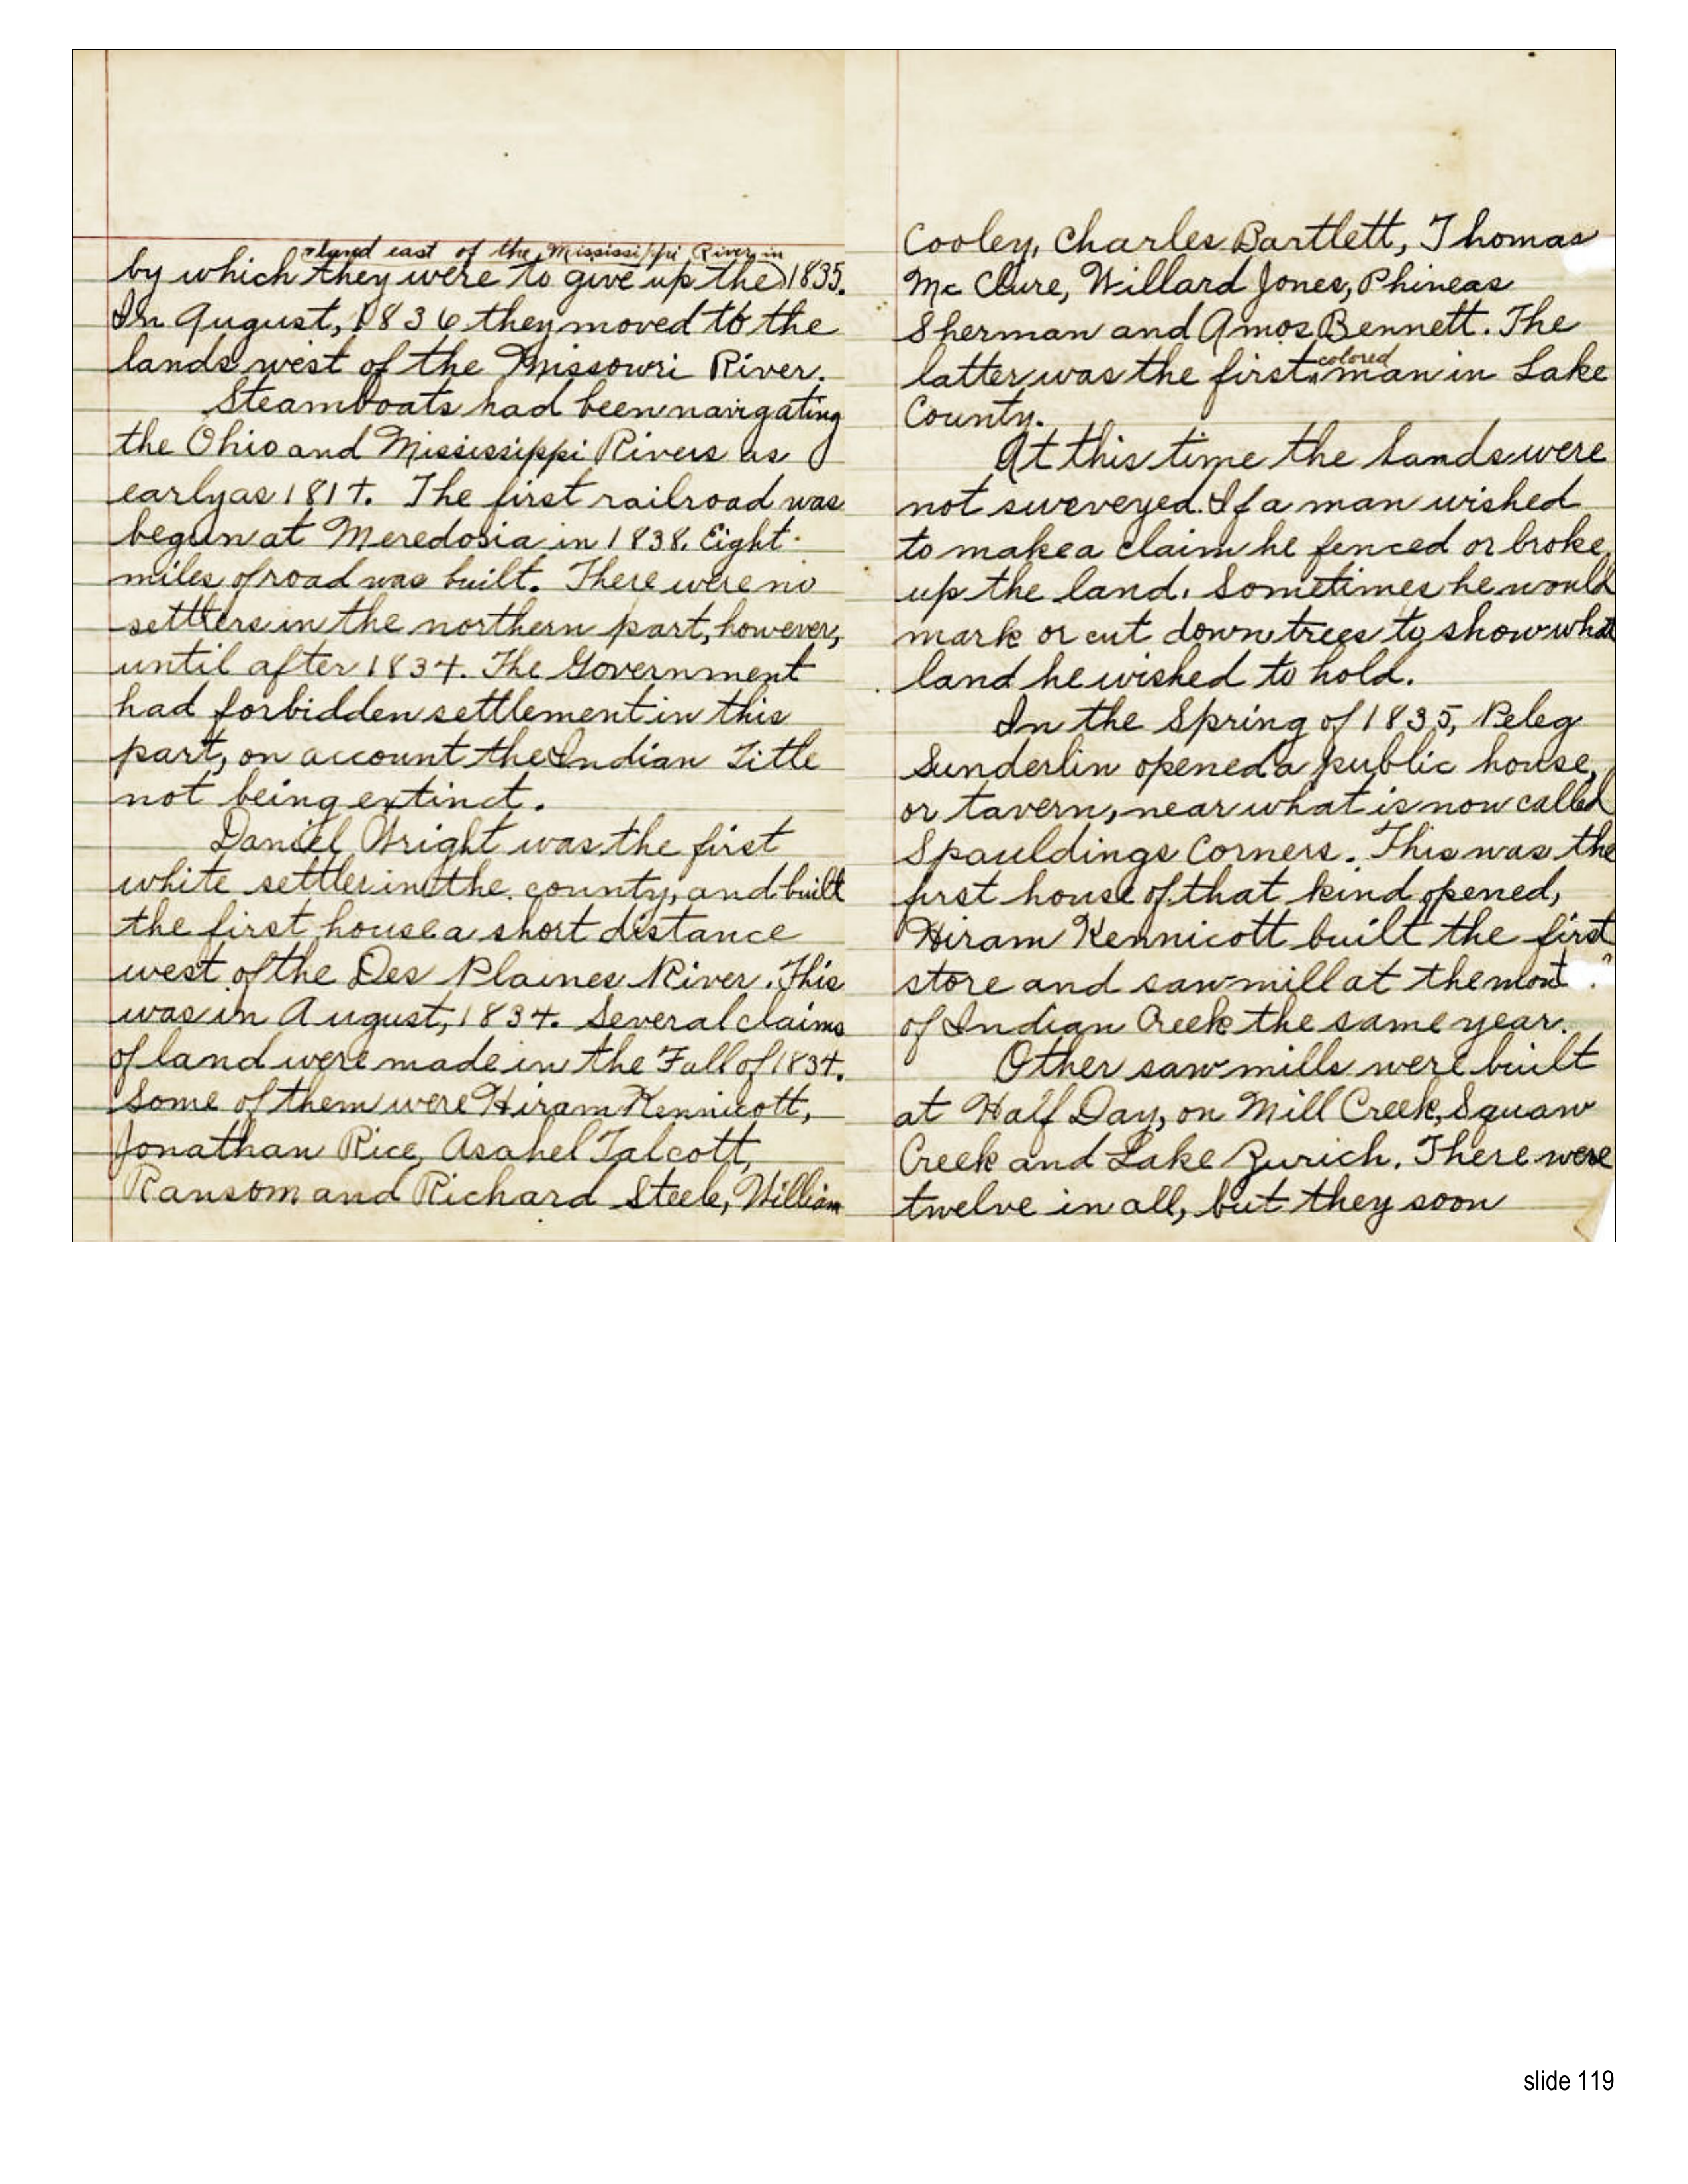 land east of the Mississippi River in
by which they were to give up the 1835.
In August, 1836 they moved to the
lands west of the Missouri River.
Steamboats had been navigating
the Ohio and Mississippi Rivers as
early as 1814. The first railroad was
begun at Meredosia in 1838. Eight
miles of road was built. There were no
settlers in the northern part, however,
until after 1834. The Government
had forbidden settlement in this
part, on account the Indian Title
not being extinct.
Daniel Wright was the first
white settler in the county, and built
the first house a short distance
west of the Des Plaines River. This
was in August, 1834. Several claims
of land were made in the Fall of 1834.
Some of them were Hiram Kennicott,
Jonathan Rice, Asahel Talcott,
Ransom and Richard Steele, William
Cooley, Charles Bartlett, Thomas
Mc Clure, Willard Jones, Phineas
Sherman and Amos Bennett. The
colored
latter was the first man in Lake
County.
At this time the lands were
not surveyed. If a man wished
to make a claim he fenced or broke
up the land. Sometimes he would
mark or cut down trees to show what
land he wished to hold.
In the Spring of 1835, Peleg
Sunderlin opened a public house,
or tavern, near what is now called
Spauldings Corners. This was the
first house of that kind opened,
Hiram Kennicott built the first
store and saw mill at the
of Indian Creek the same year.
Other saw mills were built
at Half Day, on Mill Creek, Squaw
Creek and Lake Zurich. There were
twelve in all, but they soon
slide 119